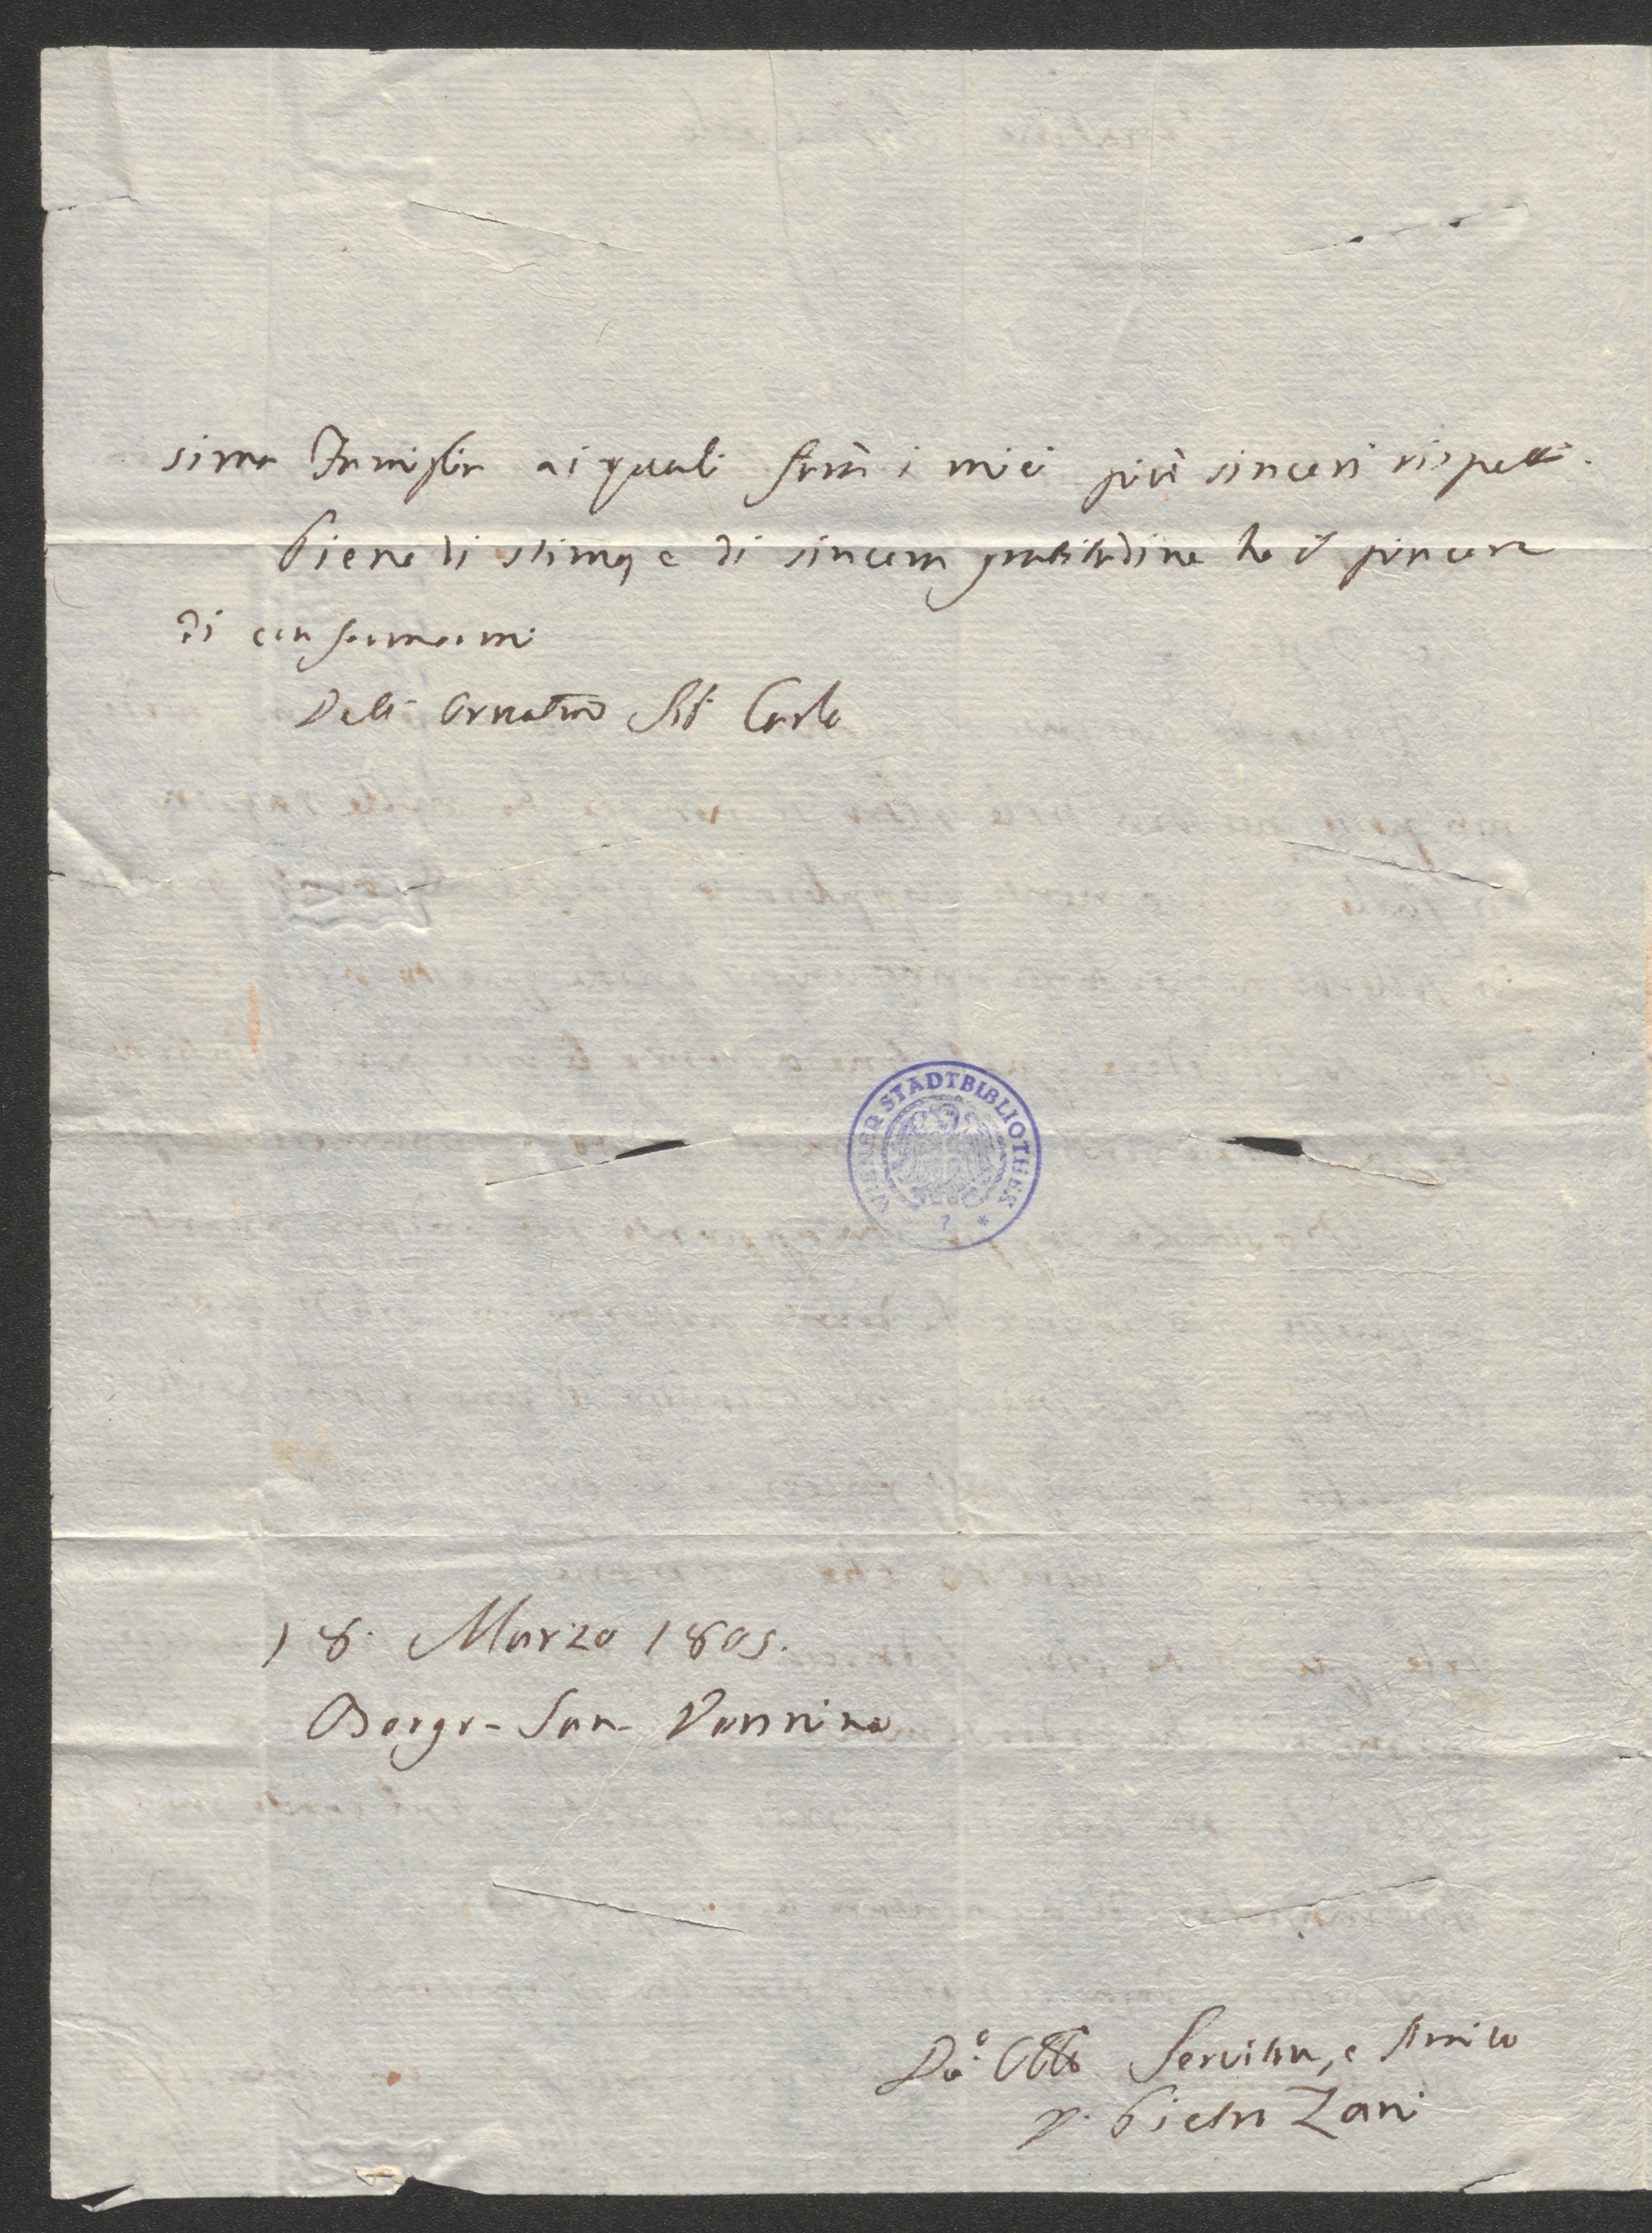 sima Famiglia ai quali farà i miei più sinceri rispetti.
Pieno di stima, e di sincera gratitudine ho il piacere
di confermarmi
Dell' Ornatmo Sigr Carlo
WIENER STADTBIBLIOTHEK
18. Marzo 1805.
Borgo-San-Donnino
Servitor, e Amico
D. Pietro Zani